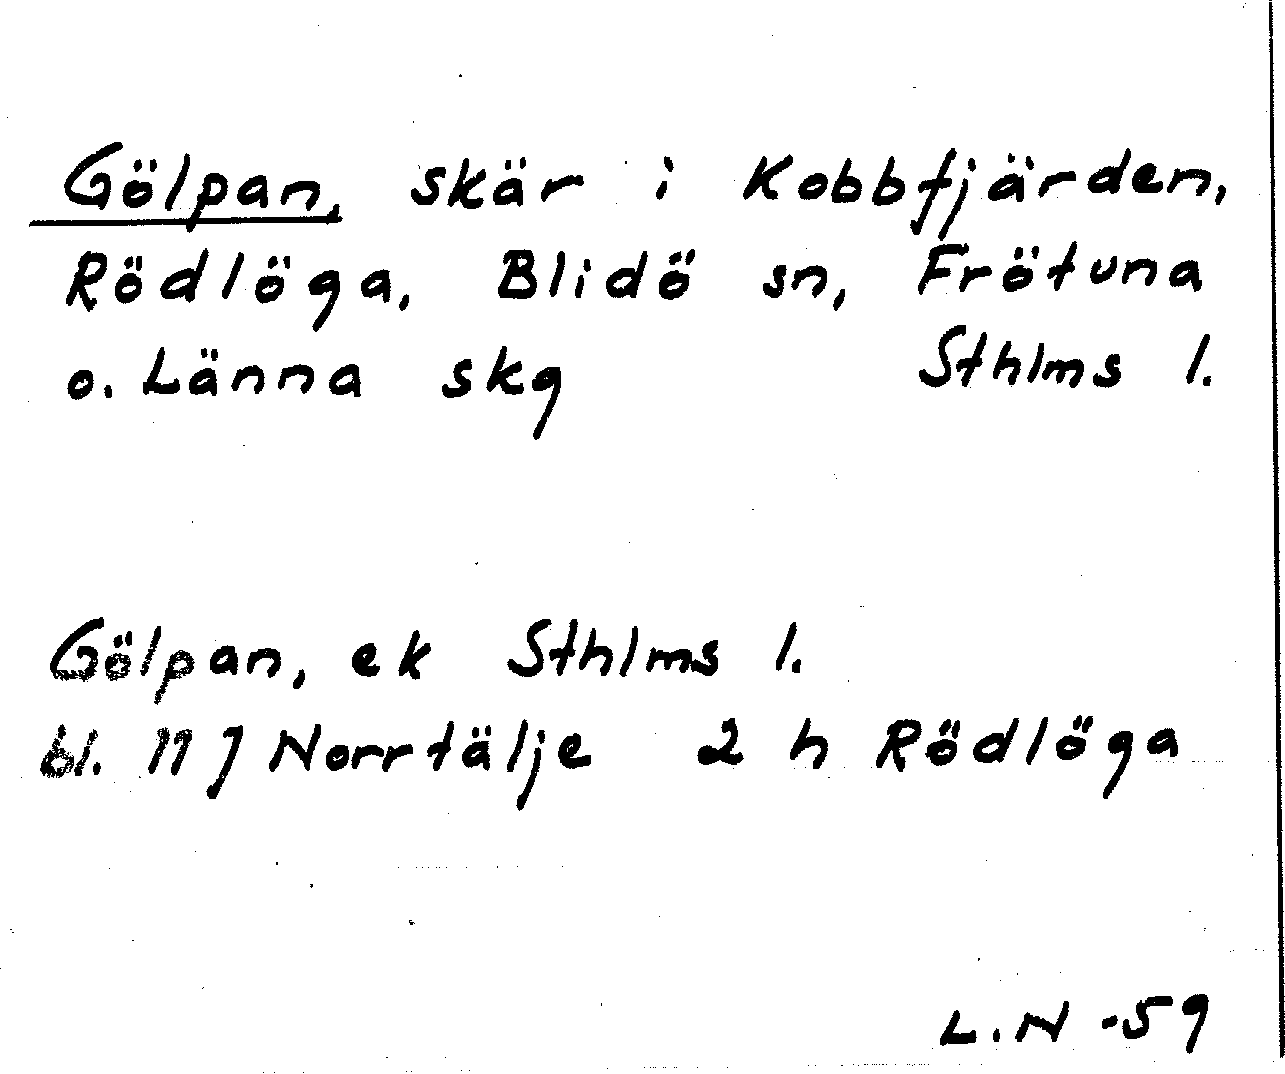 Gölpan, skär i Kobbfjärden,
Rödlöga, Blidö sn, Frötuna
o. Länna skg Sthlms l.
Gölpan, ek Sthlms l.
bl. 11 J Norrtälje 2 h Rödlöga
L.N -59